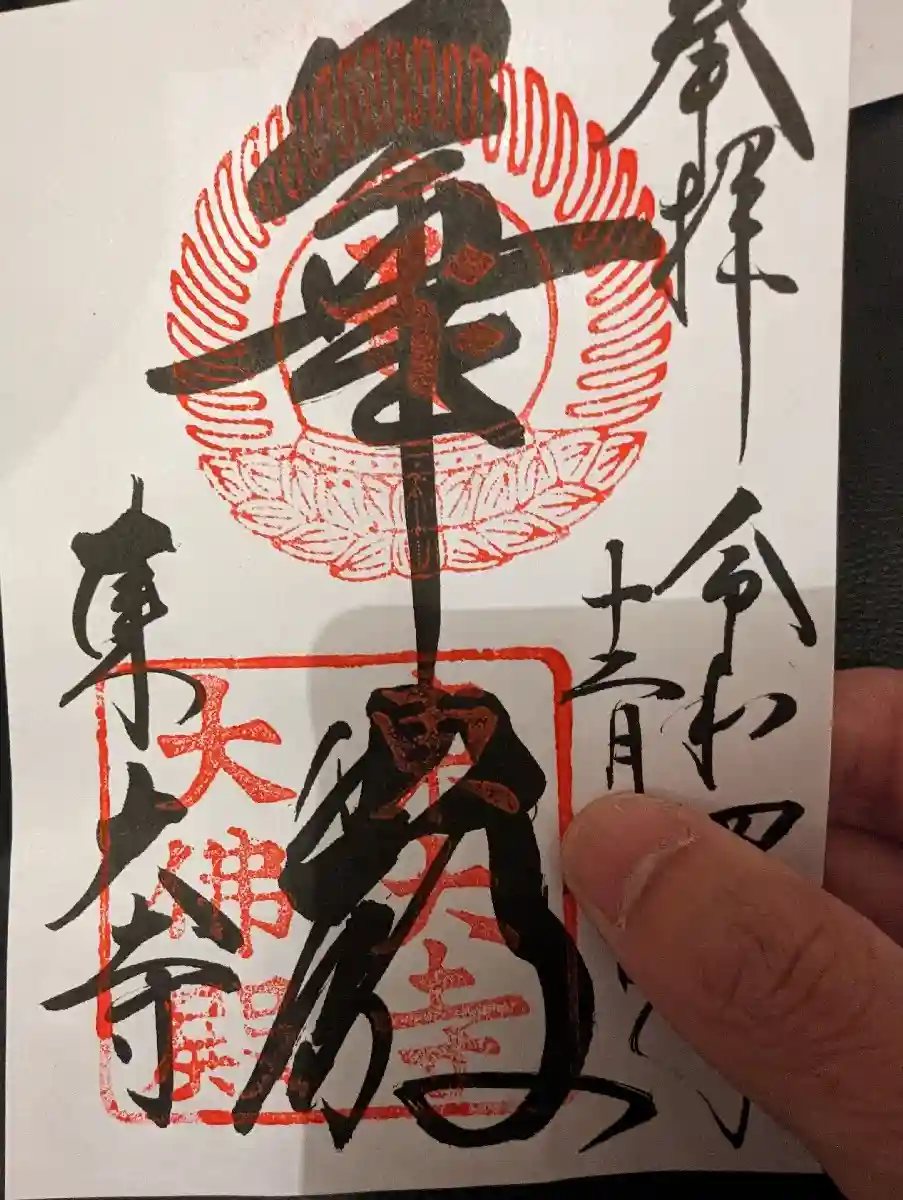 奉拝
令和四
十二月
華嚴
東大寺
大佛殿
東大寺